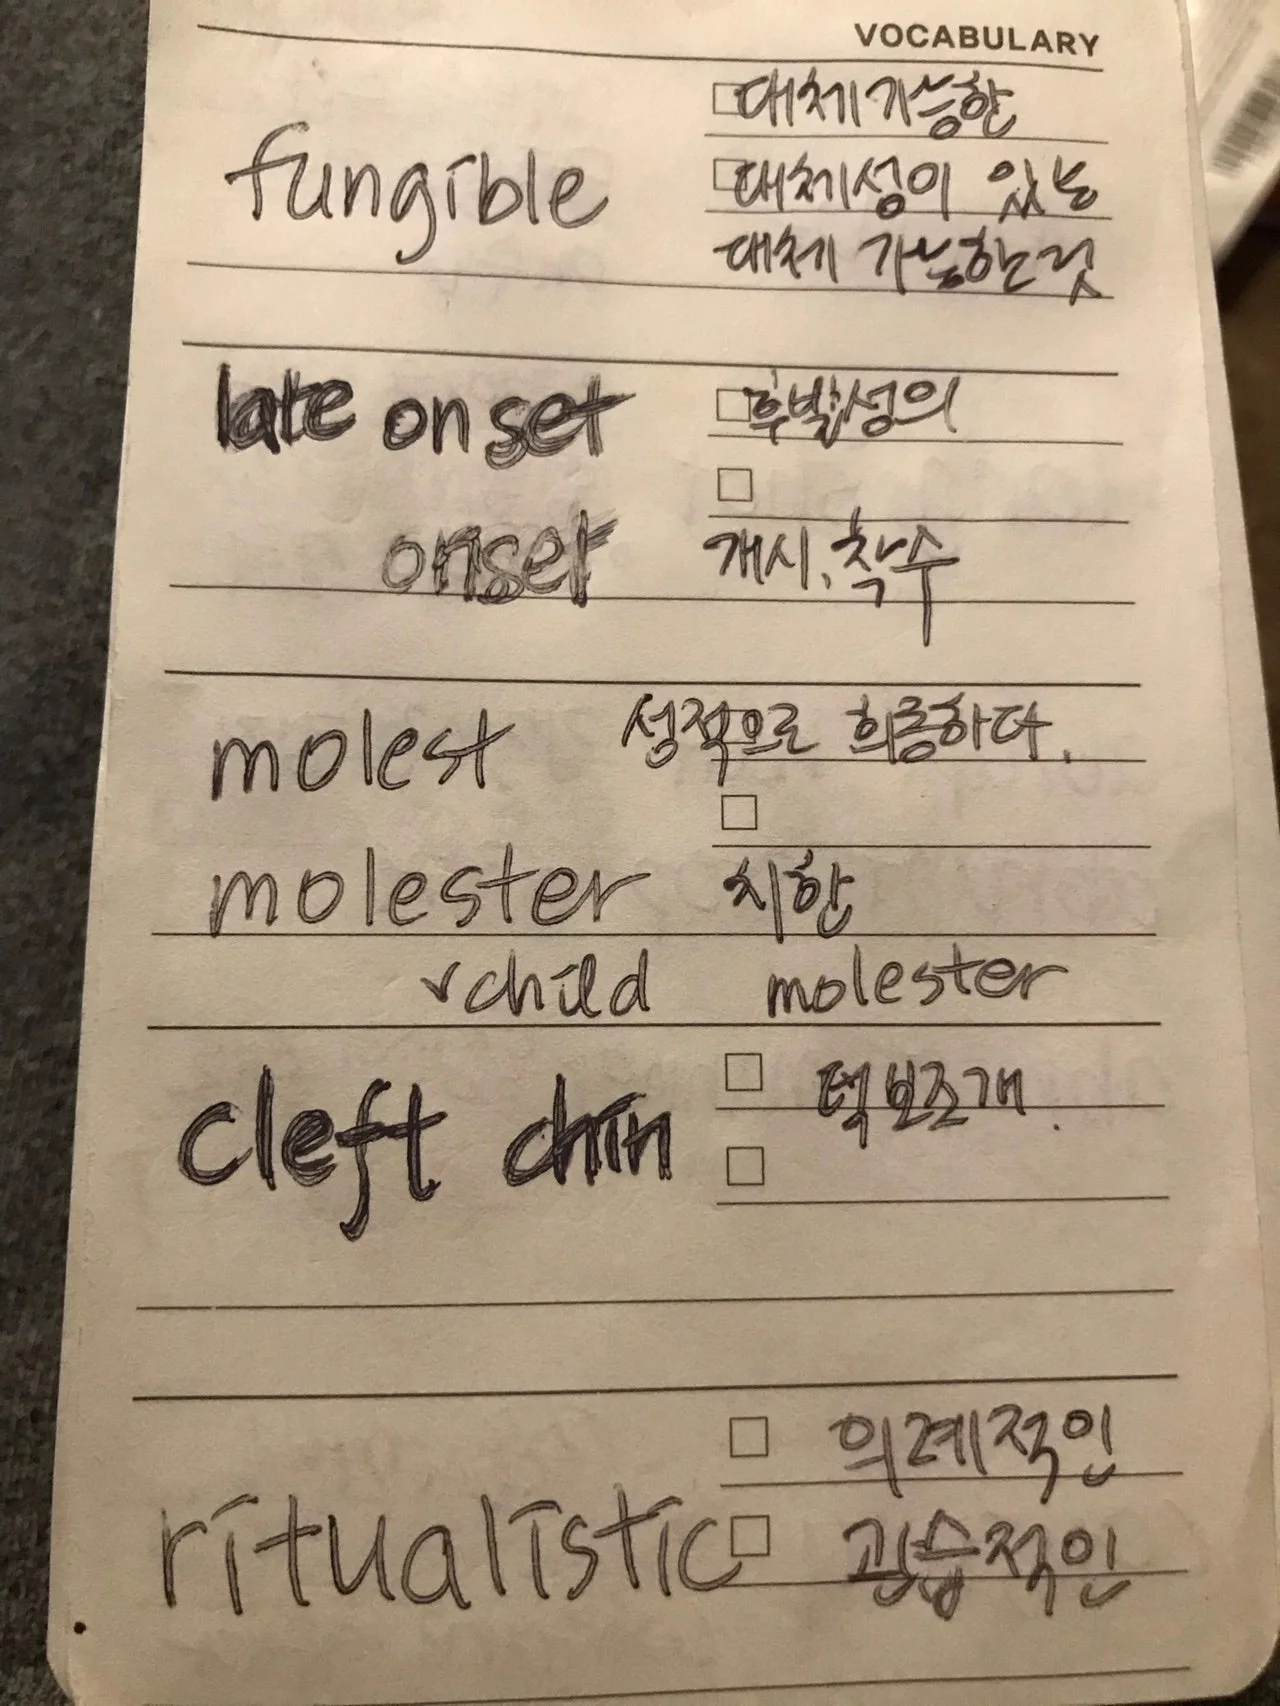 VOCABULARY
대체가능한
fungible 대체성이 있는
대체 가능한것
late onset 후발성의
onset 개시, 착수
molest 성적으로 희롱하다.
molester 치한
✓child molester
cleft chin 턱보조개.
의례적인
ritualistic 관습적인